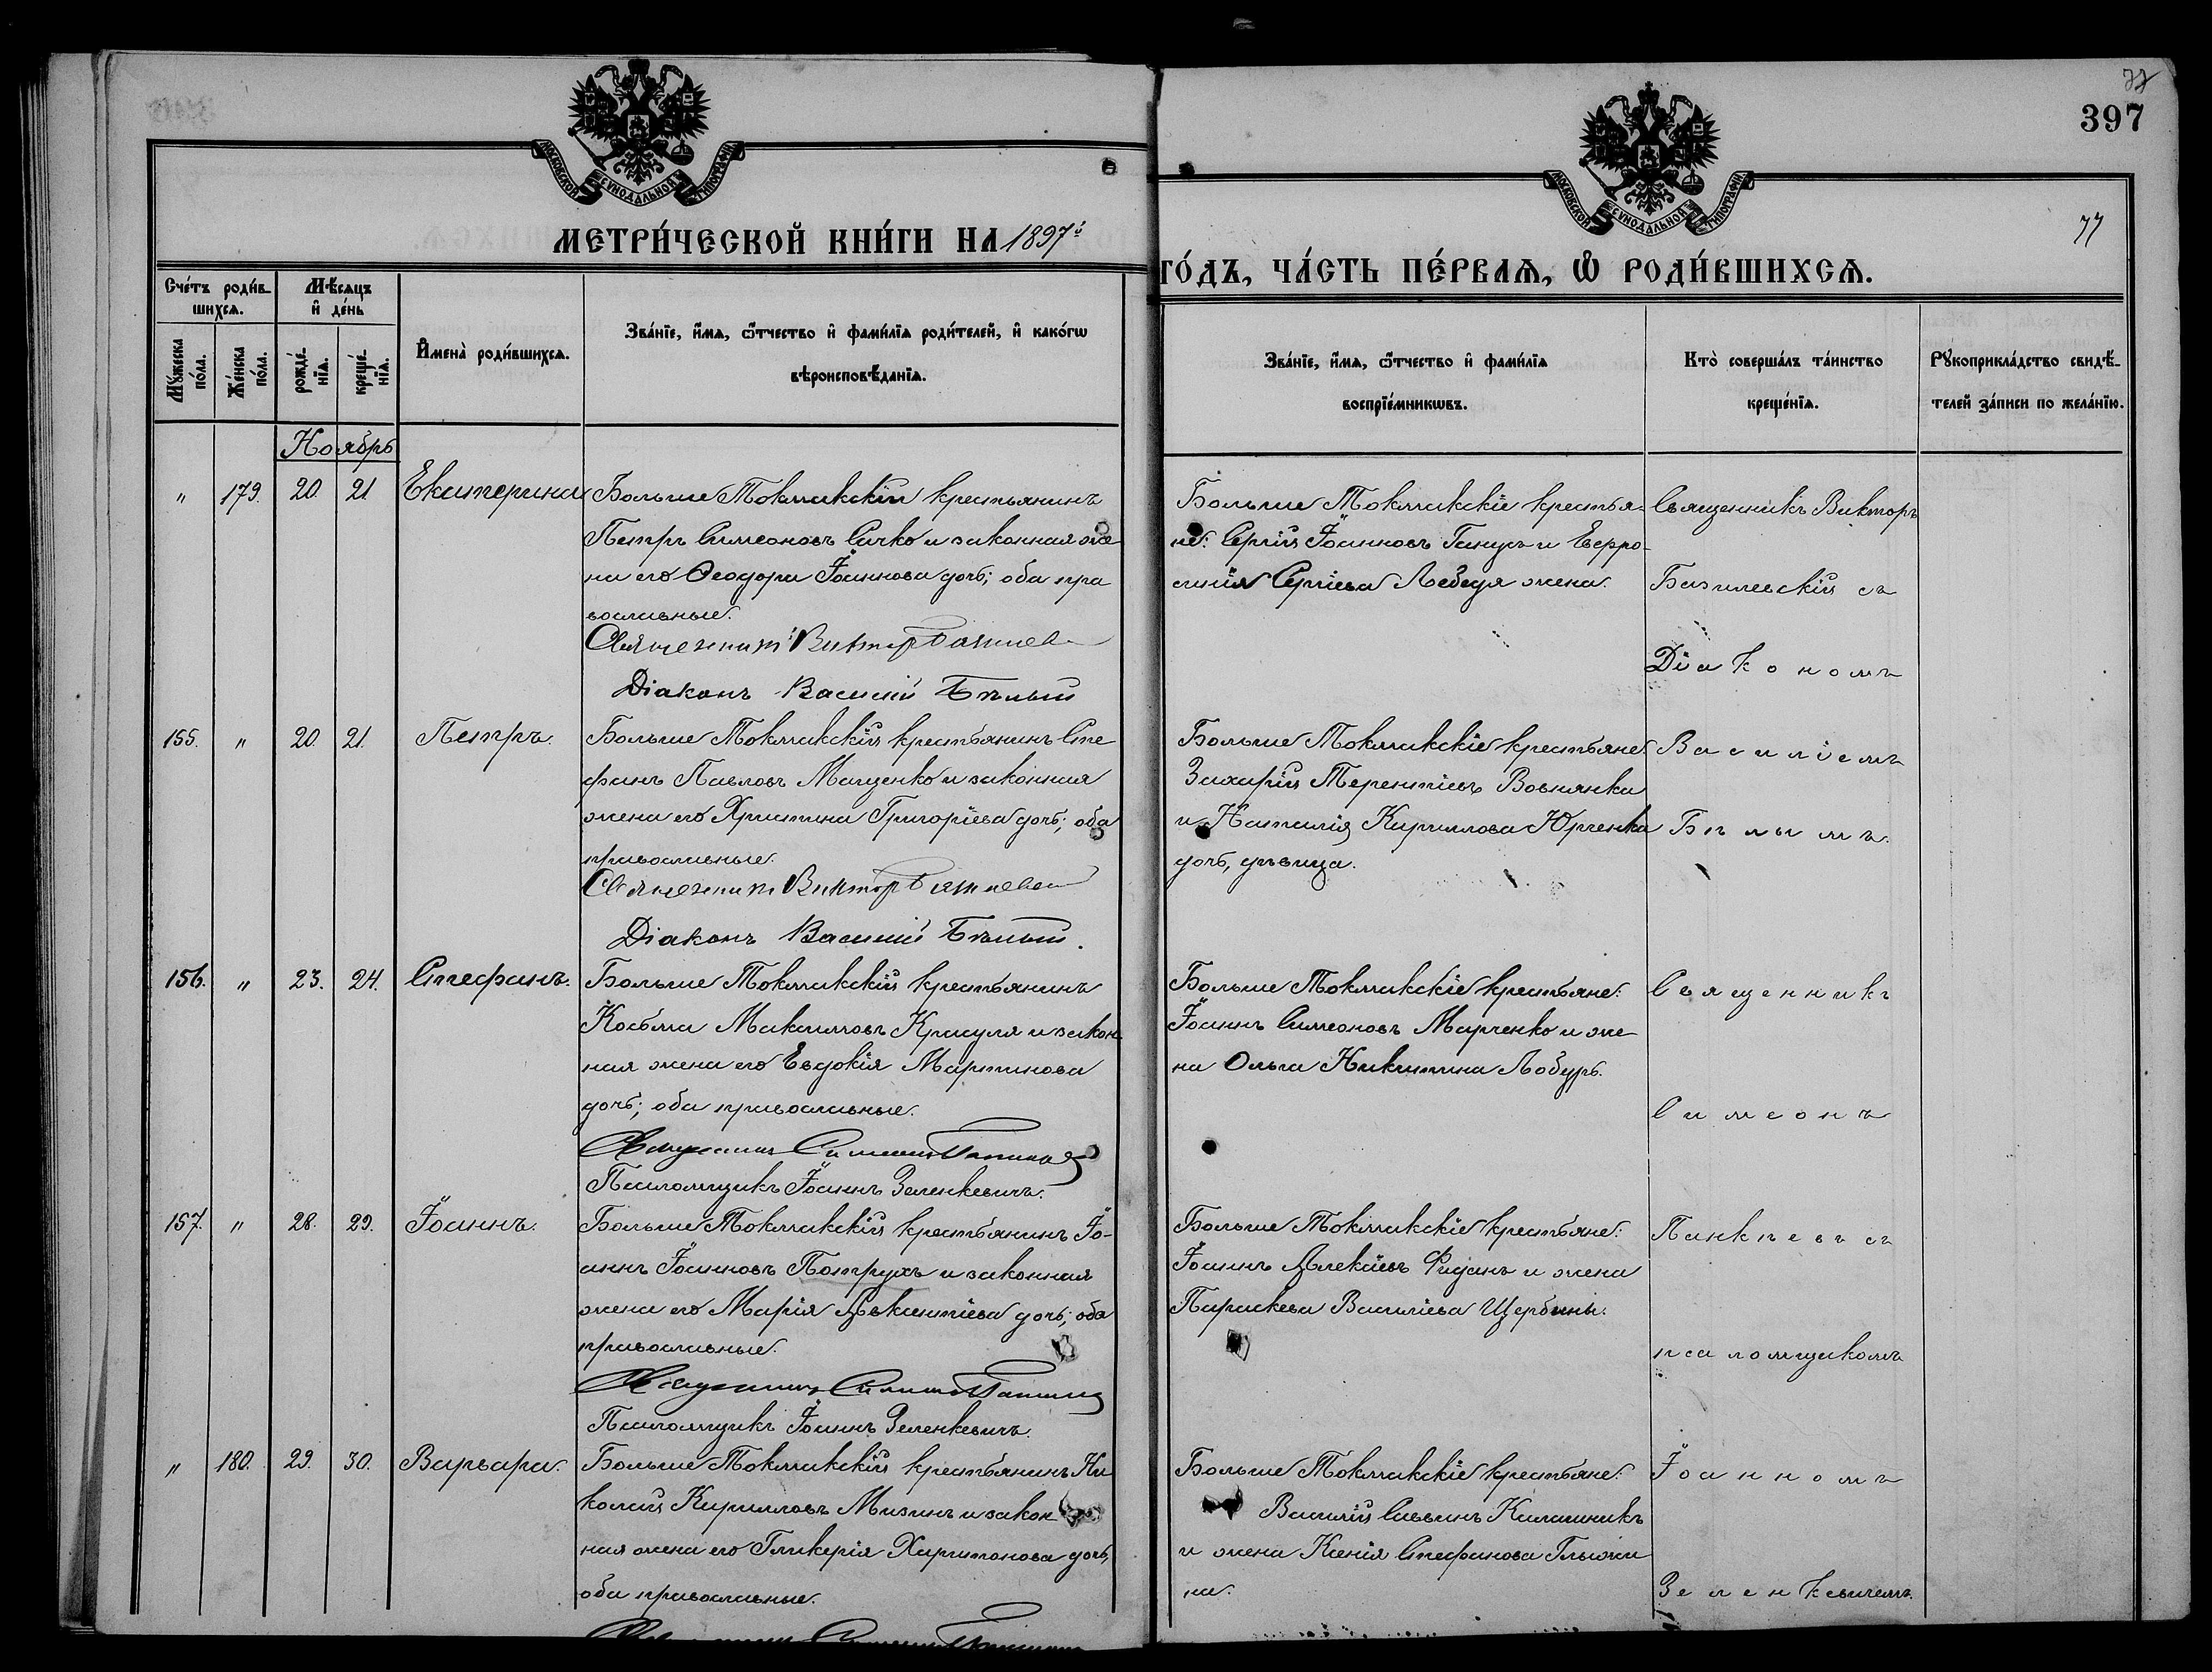 77
397
77
МОСКОВСКОЙ СѴНОДАЛЬНОЙ ТИПОГРАФІИ
МОСКОВСКОЙ СѴНОДАЛЬНОЙ ТИПОГРАФІИ
МЕТРИ́ЧЕСКОЙ КНИ́ГИ НА 1897й
ГО́ДЪ, ЧА́СТЬ ПЕ́РВАѦ, Ѡ РОДИ́ВШИХСѦ.
Сче́тъ роди́в-
шихсѧ.
Мѣ́сѧцъ
и҆ де́нь
Мꙋ́жеска
по́ла.
Же́нска
по́ла.
рожде́-
нїѧ.
креще́-
нїѧ.
И҆мена̀ роди́вшихсѧ.
Зва́нїе, и҆́мѧ, ѻ҆́тчество и҆ фами́лїѧ роди́телей, и҆ како́гѡ
вѣроисповѣ́данїѧ.
Зва́нїе, и҆́мѧ, ѻ҆́тчество и҆ фами́лїѧ
воспрїе́мникѡвъ.
Кто̀ соверша́лъ та́инство
креще́нїѧ.
Рꙋкоприкла́дство свидѣ́-
телей за́писи по жела́нїю.
Ноябрь
" 179. 20. 21 Екатерина
Больше Токмакскій крестьянинъ
Петръ Симеоновъ Сичко и законная же
на его Ѳеодора Іоаннова дочь; оба пра
вославные.
Священникъ Викторъ
Діаконъ Василій Бѣлый
Больше Токмакскіе крестья-
не: Сергій Іоанновъ Ганусъ и Евфро-
синія Сергіева Лебедя жена.
Священникъ Викторъ
Базилевскій съ
Діакономъ
155. " 20. 21. Петръ.
Больше Токмакскій крестьянинъ Сте
фанъ Павловъ Мащенко и законная
жена его Христина Григоріева дочь; оба
православные.
Священникъ Викторъ
Діаконъ Василій Бѣлый.
Больше Токмакскіе крестьяне
Захарій Терентіевъ Вовнянка
и Наталія Кириллова Юрченка
дочь, дѣвица.
Василіемъ
Бѣлымъ.
156. " 23. 24. Стефанъ.
Больше Токмакскій крестьянинъ
Косьма Максимовъ Красуля и закон
ная жена его Евдокія Мартинова
дочь; оба православные.
Священникъ Симеонъ
Псаломщикъ Іоаннъ Зеленкевичъ.
Больше Токмакскіе крестьяне:
Іоаннъ Симеоновъ Марченко и же
на Ольга Никитина Лобурь.
Священникъ
Симеонъ
157. " 28. 29. Іоаннъ.
Больше Токмакскій крестьянинъ Іо-
аннъ Іоанновъ Потрухъ и законная
жена его Марія Авксентіева дочь; оба
православные.
Священникъ Симеонъ
Псаломщикъ Іоаннъ Зеленкевичъ.
Больше Токмакскіе крестьяне:
Іоаннъ Алексіевъ и жена
Параскева Василіева Щербины.
Панкѣевъ съ
псаломщикомъ
" 180. 29. 30. Варвара.
Больше Токмакскій крестьянинъ Ни
колай Кирилловъ Мизинъ и закон
ная жена его Гликерія Харитонова дочь,
оба православные.
Больше Токмакскіе крестьяне:
Василій Саввинъ Калашникъ
и жена Ксенія Стефанова
на.
Іоанномъ
Зеленкевичемъ.